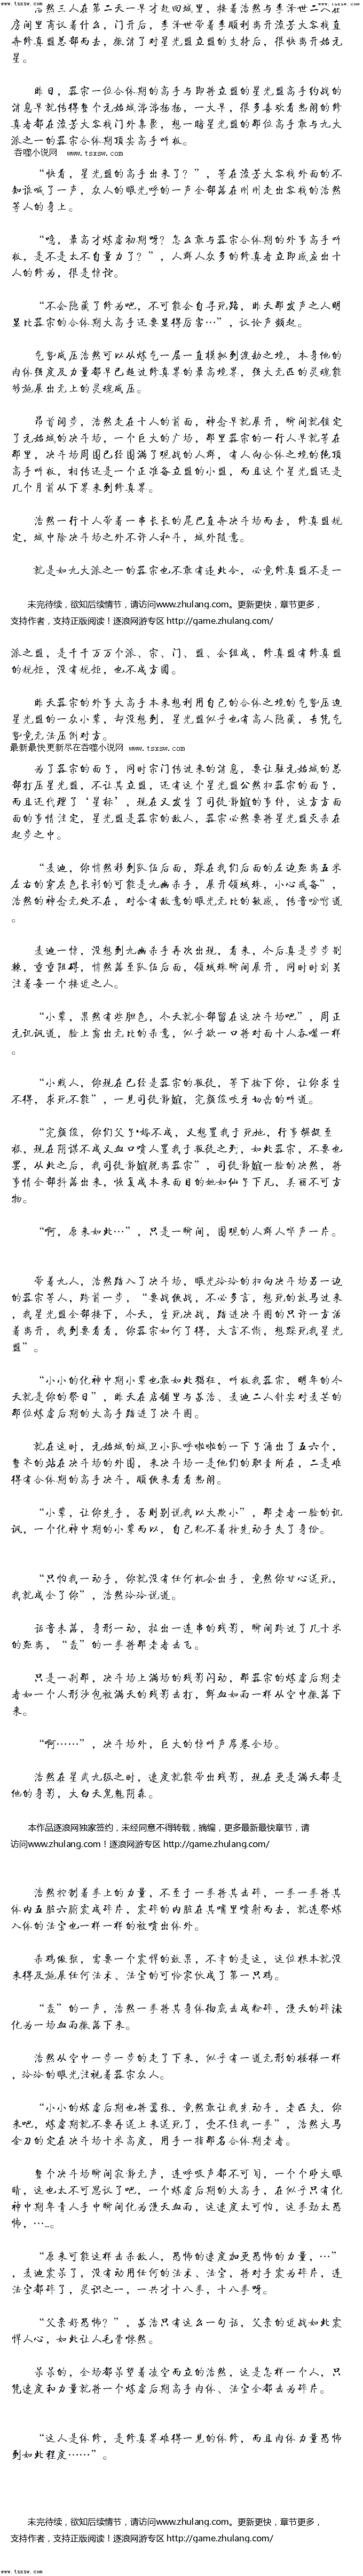 www.tsxsw.com www.tsxsw.com
浩然三人在第二天一早才赶回城里，接着浩然与李泽世二人在
房间里商议着什么，门开后，李泽世带着李顺利离开流芳大客栈直
奔修真盟总部而去，撤消了对星光盟立盟的支持后，很快离开始元
星。
昨日，器宗一位合体期的高手与即将立盟的星光盟高手约战的
消息早就传得整个元始城沸沸扬扬，一大早，很多喜欢看热闹的修
真者都在流芳大客栈门外靠聚，想一睹星光盟的那位高手敢与九大
派之一的器宗合体期顶尖高手叫板。
吞噬小说网 www.tsxsw.com
“快看，星光盟的高手出来了？”，等在流芳客栈外面的不
知谁喊了一声，众人的眼光呼的一声全部落在刚刚走出客栈的浩然
等人的身上。
“噫，最高才炼虚初期呀？怎么敢与器宗合体期的外事高手叫
板，是不是太不自量力了？”，人群人众多的修真者立即感应出十
人的修为，很是惊诧。
“不会隐藏了修为吧，不可能会自寻死路，昨天那发声之人明
显比器宗的合体期大高手还要显得厉害…”，议论声频起。
气势威压浩然可以从炼气一层一直模拟到渡劫之境，本身他的
肉体强度及力量都早已超过修真界的最高境界，强大无匹的灵魂能
够施展出无上的灵魂威压。
昂首阔步，浩然走在十人的首面，神念早就展开，瞬间就锁定
了元始城的决斗场，一个巨大的广场，那里器宗的一行人早就等在
那里，决斗场周围已经围满了观战的人群，有人向合体之境的绝顶
高手叫板，相传还是一个正准备立盟的小盟，而且这个星光盟还是
几个月前从下界来到修真界。
浩然一行十人带着一串长长的尾巴直奔决斗场而去，修真盟规
定，城中除决斗场之外不许人私斗，城外随意。
就是如九大派之一的器宗也不敢有违此令，必竟修真盟不是一
未完待续，欲知后续情节，请访问www.zhulang.com。更新更快，章节更多，
支持作者，支持正版阅读！逐浪网游专区 http://game.zhulang.com/
派之盟，是千千万万个派、宗、门、盟、会组成，修真盟有修真盟
的规矩，没有规矩，也不成方圆。
昨天器宗的外事大高手本来想利用自己的合体之境的气势压迫
星光盟的一众小辈，却没想到，星光盟似乎也有高人隐藏，专凭气
势竟无法压倒对方。
最新最快更新尽在吞噬小说网 www.tsxsw.com
为了器宗的面子，同时宗门传过来的消息，要让驻元始城的总
部打压星光盟，不让其立盟，还有这个星光盟公然扫器宗的面子，
而且还代理了‘星标’，现在又发生了司徒静媗的事件，这方方面
面的事情注定，星光盟是器宗的敌人，器宗必然要将星光盟灭杀在
起步之中。
“麦迪，你悄然移到队伍后面，跟在我们后面的左边距离五米
左右的穿灰色长衫的可能是九幽杀手，展开领域珠，小心戒备”，
浩然的神念无处不在，对含有敌意的眼光无比的敏感，传音吩咐道
。
麦迪一惊，没想到九幽杀手再次出现，看来，今后真是步步荆
棘，重重阻碍，悄然落至队伍后面，领域珠瞬间展开，同时时刻关
注着每一个接近之人。
“小辈，果然有些胆色，今天就全部留在这决斗场吧”，周正
元讥讽道，脸上露出无比的杀意，似乎欲一口将对面十人吞噬一样
。
“小贱人，你现在已经是器宗的叛徒，等下捡下你，让你求生
不得，求死不能”，一见司徒静媗，完颜俊咬牙切齿的叫道。
“完颜俊，你们父子*婚不成，又想置我于死地，行事龌龊至
极，现在阴谋不成又血口喷人置我于叛徒之列，如此器宗，不要也
罢，从此之后，我司徒静媗脱离器宗”，司徒静媗一脸的决然，将
事情全部抖落出来，恢复成本来面目的她如仙子下凡，美丽不可方
物。
“啊，原来如此…”，只是一瞬间，围观的人群人哗声一片。
带着九人，浩然踏入了决斗场，眼光冷冷的扫向决斗场另一边
的器宗等人，跨前一步，“要战便战，不必多言，想死的放马过来
，我星光盟全部接下，今天，生死决战，踏进决斗圈的只许一方活
着离开，我到要看看，你器宗如何了得，大言不惭，想踩死我星光
盟”。
“小小的化神中期小辈也敢如此猖狂，叫板我器宗，明年的今
天就是你的祭日”，昨天在店铺里与苏浩、麦迪二人针尖对麦芒的
那位炼虚后期的大高手踏进了决斗圈。
就在这时，元始城的城卫小队呼啦啦的一下子涌出了五六个，
整齐的站在决斗场的外围，来决斗场一是他们的职责所在，二是难
得有合体期的高手决斗，顺便来看看热闹。
“小辈，让你先手，否则别说我以大欺小”，那老者一脸的讥
讽，一个化神中期的小辈而以，自己犯不着抢先动手失了身份。
“只怕我一动手，你就没有任何机会出手，竟然你甘心送死，
我就成全了你”，浩然冷冷说道。
话音未落，身形一动，拉出一连串的残影，瞬间跨过了几十米
的距离，“轰”的一拳将那老者击飞。
只是一刹那，决斗场上满场的残影闪动，那器宗的炼虚后期老
者如一个人形沙包被满天的残影击打，鲜血如雨一样从空中撒落下
来。
“啊……”，决斗场外，巨大的惊叫声席卷全场。
浩然在星武九级之时，速度就能带出残影，现在更是满天都是
他的身影，大白天鬼魅阴森。
本作品逐浪网独家签约，未经同意不得转载，摘编，更多最新最快章节，请
访问www.zhulang.com！逐浪网游专区 http://game.zhulang.com/
浩然控制着拳上的力量，不至于一拳将其击碎，一拳一拳将其
体内五脏六腑震成碎片，震碎的内脏在其嘴里喷射而去，就连祭炼
入体的法宝也一样一样的被喷出体外。
杀鸡儆猴，需要一个震悍的效果，不幸的是这，这位根本就没
来得及施展任何法术、法宝的可怜家伙成了第一只鸡。
“轰”的一声，浩然一拳将其身体彻底击成粉碎，漫天的碎沫
化为一场血雨撒落下来。
浩然从空中一步一步的走了下来，似乎有一道无形的楼梯一样
，冷冷的眼光注视着器宗众人。
“小小的炼虚后期也将嚣张，竟然敢让我先动手，老匹夫，你
来吧，炼虚期就不要再送上来送死了，受不住我一拳”，浩然大马
金刀的定在决斗场十米高度，用手一指那名合体期老者。
整个决斗场瞬间寂静无声，连呼吸声都不可闻，一个个睁大眼
睛，这也太不可思议了吧，一个炼虚后期的大高手，在似乎只有化
神中期年青人手中瞬间化为漫天血雨，这速度太可怕，这拳劲太恐
怖，……。
“原来可能这样击杀敌人，恐怖的速度加更恐怖的力量，…”
，麦迪震呆了，没有动用任何的法术、法宝，将对手震为碎片，连
法宝都碎了，灵识之一，一共才十八拳，十八拳呀。
“父亲好恐怖？”，苏浩只有这么一句话，父亲的近战如此震
悍人心，如此让人毛骨悚然。
呆呆的，全场都呆望着凌空而立的浩然，这是怎样一个人，只
凭速度和力量就将一个炼虚后期高手肉体、法宝全都击为碎片。
“这人是体修，是修真界难得一见的体修，而且肉体力量恐怖
到如此程度……”。
未完待续，欲知后续情节，请访问www.zhulang.com。更新更快，章节更多，
支持作者，支持正版阅读！逐浪网游专区 http://game.zhulang.com/
www.tsxsw.com